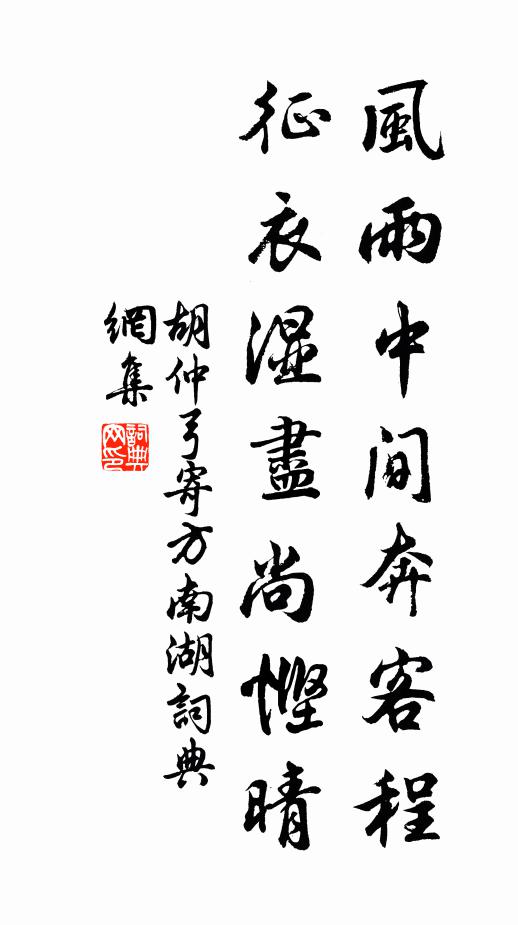 風雨中間奔客程
征衣濕盡尚慳晴
胡仲弓寄方南湖詞典
網集
詞典網印